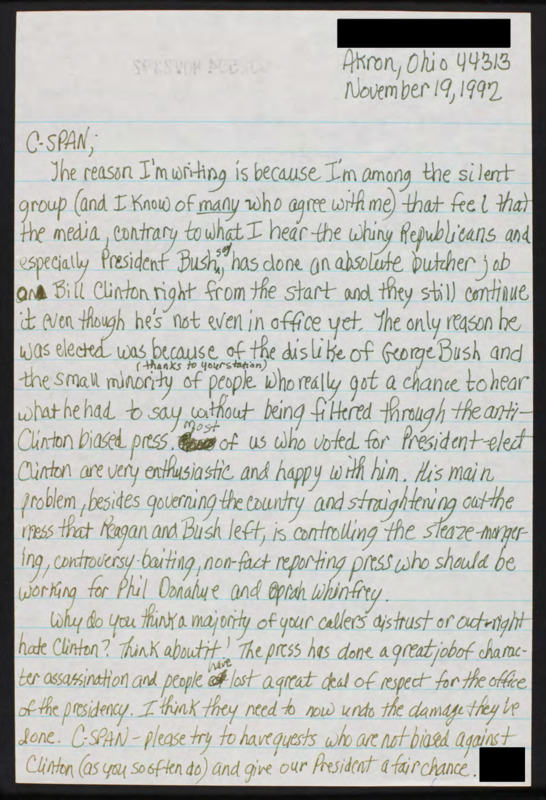 Akron, Ohio 44313
November 19, 1992
C-SPAN;
The reason I'm writing is because I'm among the silent
group (and I know of many who agree with me) that feel that
the media, contrary to what I hear the whiny Republicans and
especially President Bush, say has done an absolute butcher job
on Bill Clinton right from the start and they still continue
it even though he's not even in office yet. The only reason he
was elected was because of the dislike of George Bush and
(thanks to your station)
the small minority of people who really got a chance to hear
what he had to say without being filtered through the anti-
Clinton biased press. Most of us who voted for President-elect
Clinton are very enthusiastic and happy with him. His main
problem, besides governing the country and straightening out the
mess that Reagan and Bush left, is controlling the sleaze-monger-
ing, controversy-baiting, non-fact reporting press who should be
working for Phil Donahue and Oprah Whinfrey.
Why do you think a majority of your callers distrust or out-right
hate Clinton? Think about it! The press has done a great job of charac-
ter assassination and people have lost a great deal of respect for the office
of the presidency. I think they need to now undo the damage they've
done. C-SPAN - please try to have guests who are not biased against
Clinton (as you so often do) and give our President a fair chance.